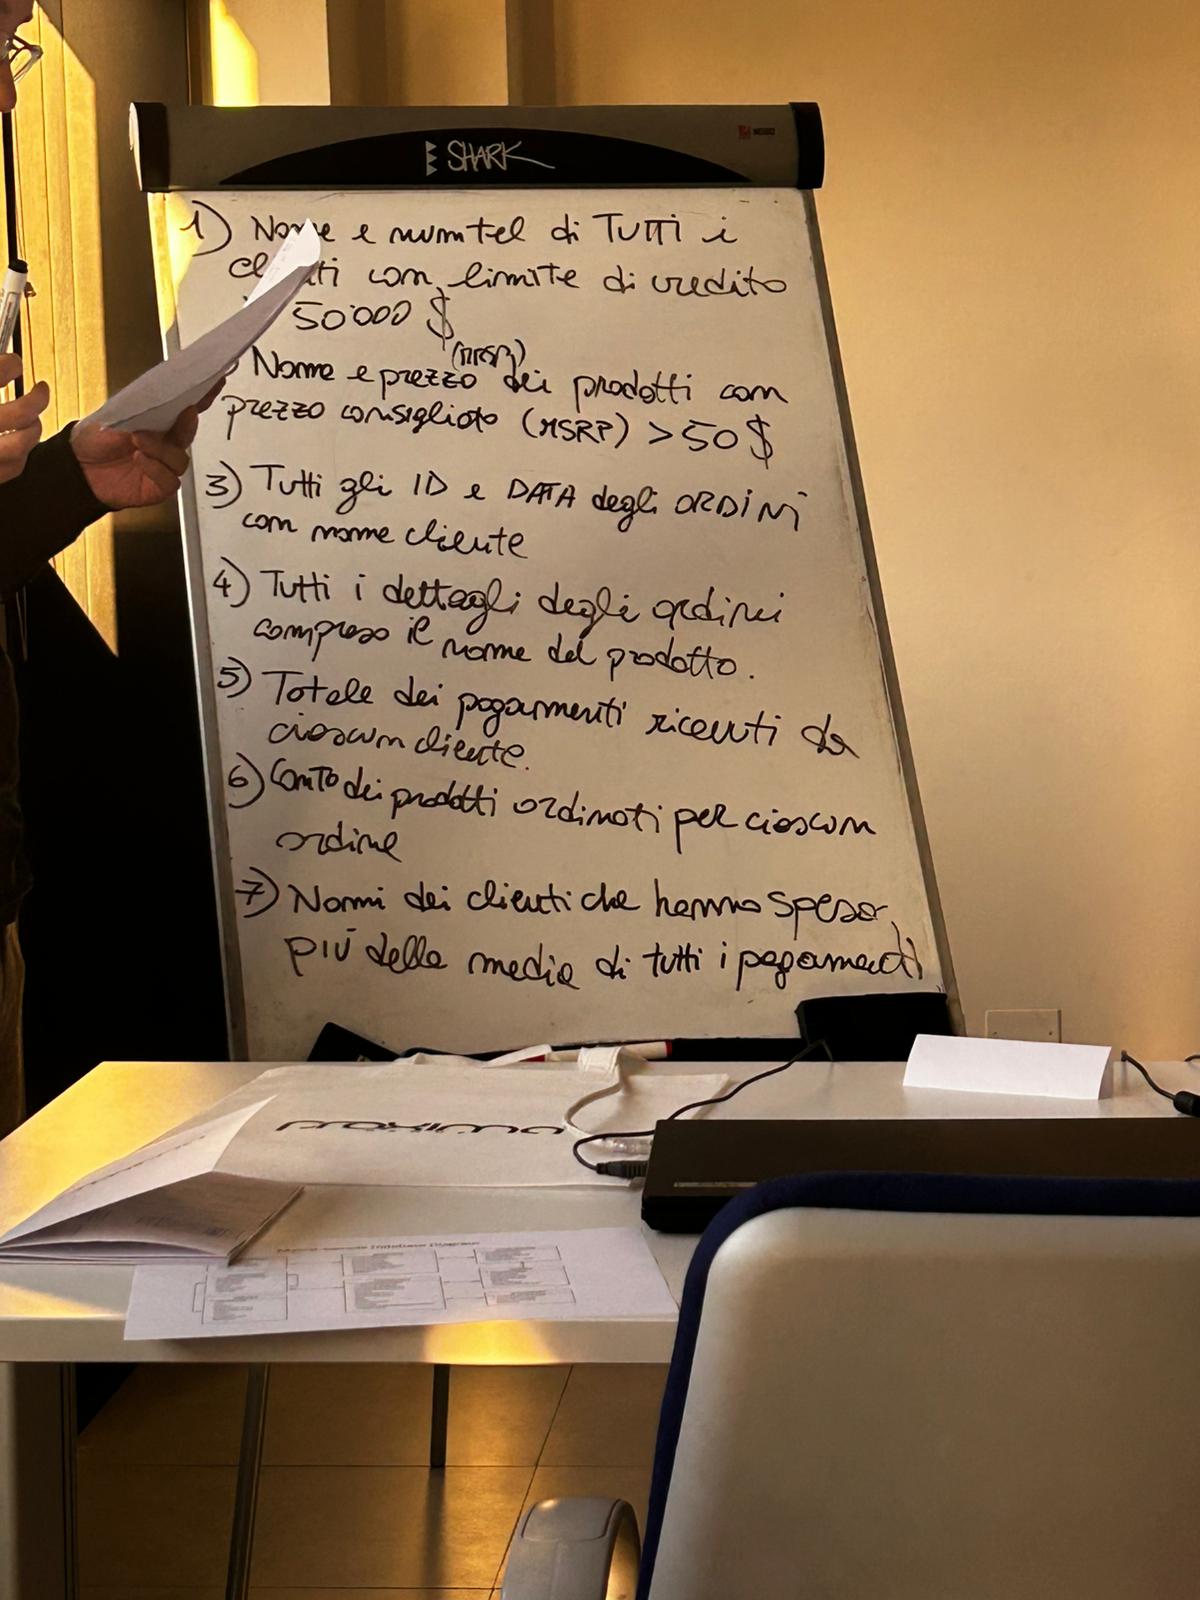 SHARK
NOBO
1) Nome e numtel di TUTTI i
clienti con limite di credito
50'000 $
(MSRP)
Nome e prezzo dei prodotti con
prezzo consigliato (MSRP) > 50 $
3) Tutti gli ID e DATA degli ORDINI
con nome cliente
4) Tutti i dettagli degli ordini
compreso il nome del prodotto.
5) Totale dei pagamenti ricevuti da
ciascun cliente.
6) Conto dei prodotti ordinati per ciascun
ordine
7) Nomi dei clienti che hanno speso
più della media di tutti i pagamenti
proxima
Database Diagram